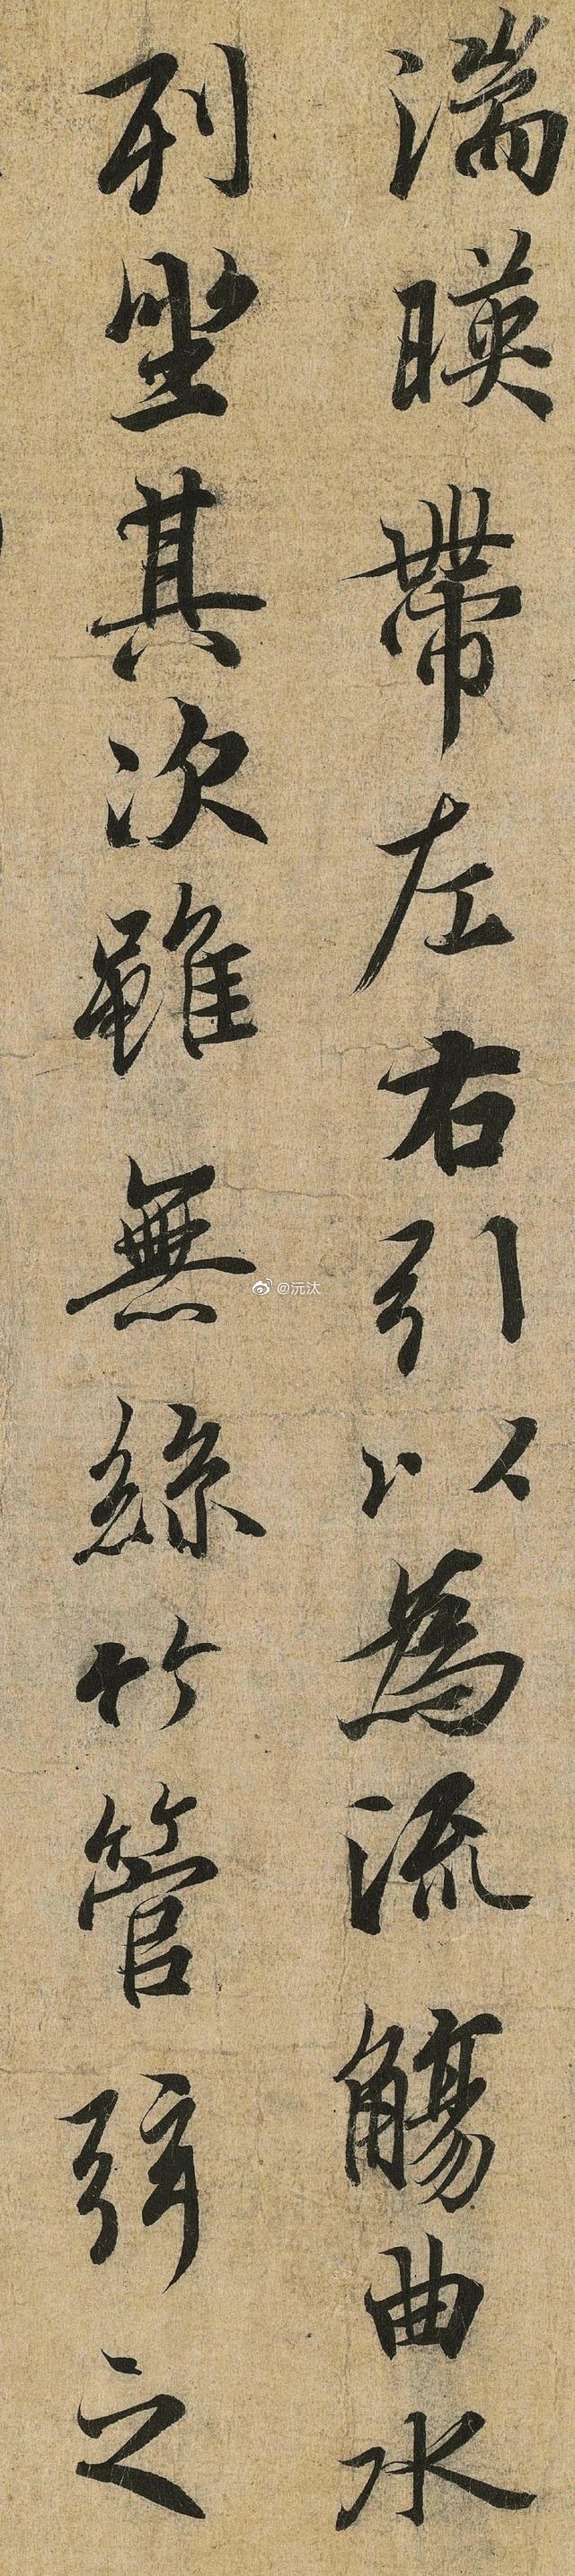 湍暎帶左右引以為流觴曲水
列坐其次雖無絲竹管弦之
@沅汰